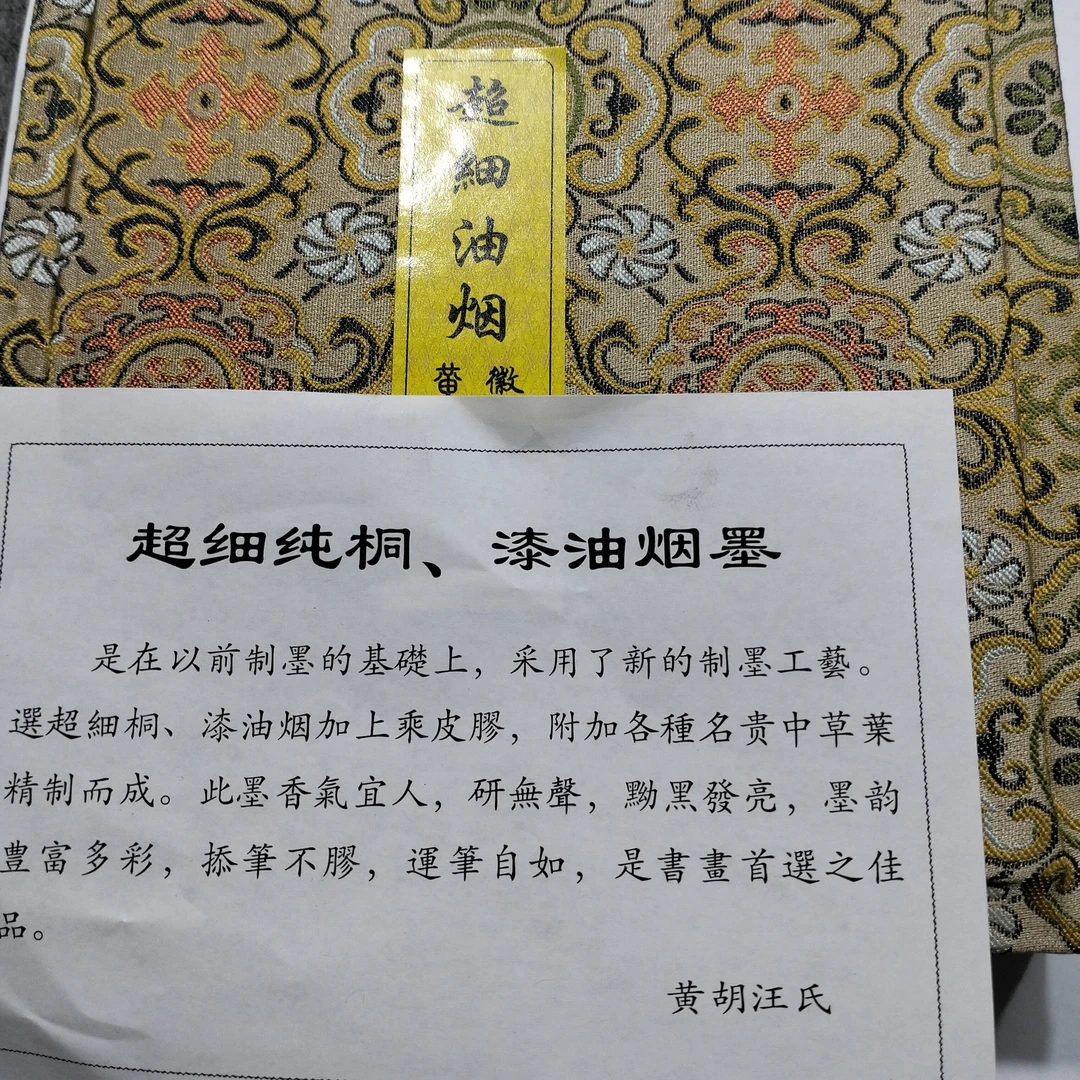 超細油烟
徽
超细纯桐、漆油烟墨
是在以前制墨的基礎上，采用了新的制墨工藝。
選超細桐、漆油烟加上乘皮膠，附加各種名贵中草葉
精制而成。此墨香氣宜人，研無聲，黝黑發亮，墨韵
豊富多彩，掭筆不膠，運筆自如，是書畫首選之佳
品。
黄胡汪氏